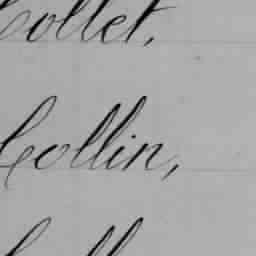 Collet,
Collin,